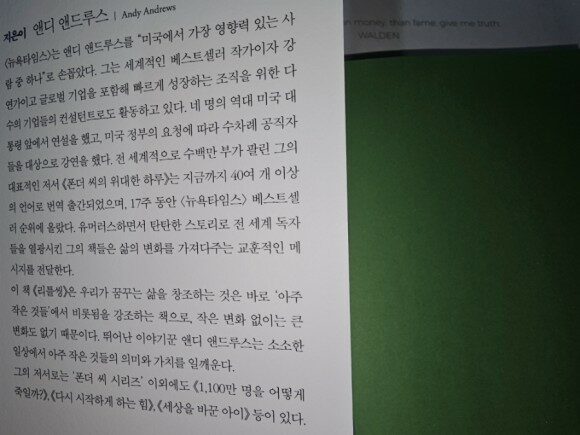 지은이 앤디 앤드루스 | Andy Andrews
〈뉴욕타임스〉는 앤디 앤드루스를 “미국에서 가장 영향력 있는 사
람 중 하나”로 손꼽았다. 그는 세계적인 베스트셀러 작가이자 강
연가이고 글로벌 기업을 포함해 빠르게 성장하는 조직을 위한 다
수의 기업들의 컨설턴트로도 활동하고 있다. 네 명의 역대 미국 대
통령 앞에서 연설을 했고, 미국 정부의 요청에 따라 수차례 공직자
들을 대상으로 강연을 했다. 전 세계적으로 수백만 부가 팔린 그의
대표적인 저서 《폰더 씨의 위대한 하루》는 지금까지 40여 개 이상
의 언어로 번역 출간되었으며, 17주 동안 〈뉴욕타임스〉 베스트셀
러 순위에 올랐다. 유머러스하면서 탄탄한 스토리로 전 세계 독자
들을 열광시킨 그의 책들은 삶의 변화를 가져다주는 교훈적인 메
시지를 전달한다.
이 책 《리틀씽》은 우리가 꿈꾸는 삶을 창조하는 것은 바로 ‘아주
작은 것들’에서 비롯됨을 강조하는 책으로, 작은 변화 없이는 큰
변화도 없기 때문이다. 뛰어난 이야기꾼 앤디 앤드루스는 소소한
일상에서 아주 작은 것들의 의미와 가치를 일깨운다.
그의 저서로는 ‘폰더 씨 시리즈’ 이외에도 《1,100만 명을 어떻게
죽일까?》, 《다시 시작하게 하는 힘》, 《세상을 바꾼 아이》 등이 있다.
money, than fame, give me truth.
WALDEN